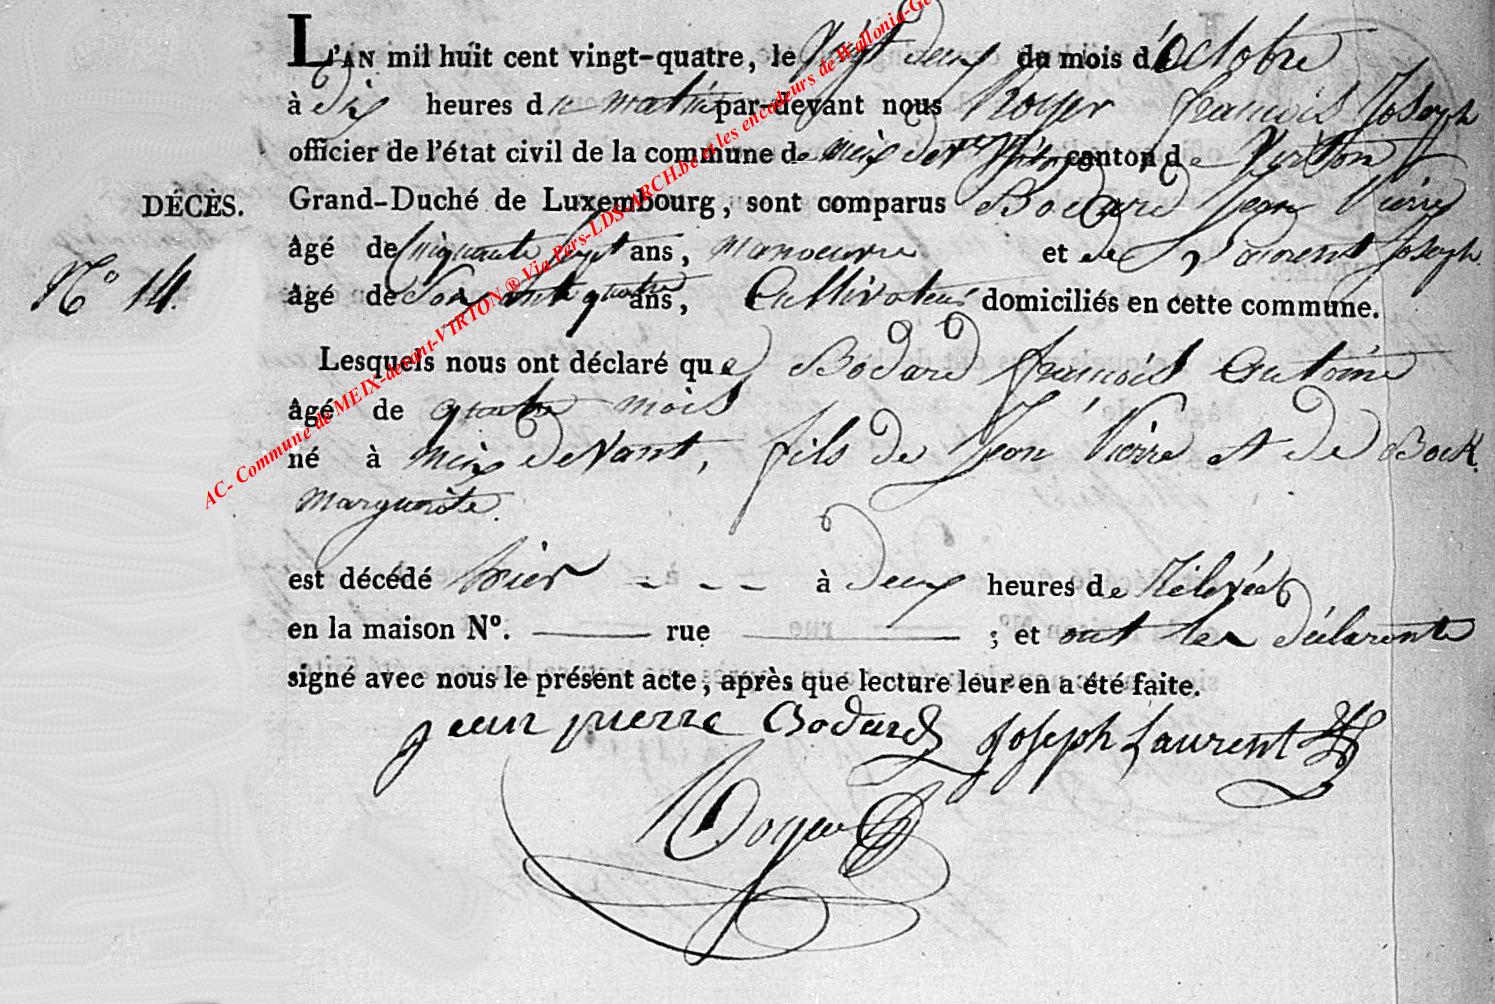 L'AN mil huit cent vingt-quatre, le vingt deux du mois d'octobre
à dix heures du matin par-devant nous Royer françois Joseph
officier de l'état civil de la commune de meix devant Virton canton de Virton
Grand-Duché de Luxembourg, sont comparus Bodard Jean Pierre
DÉCÈS.
âgé de Cinquante sept ans, manoeuvre et de Laurent Joseph
N° 14.
âgé de Soixante quatre ans, Cultivateurs domiciliés en cette commune.
Lesquels nous ont déclaré que Bodard françois Antoine
âgé de quatre mois
né à meix devant, fils de Jean Pierre et de Bock
Marguerite.
est décédé hier - - - à deux heures de Relevée
en la maison N°. ——— rue ——— ; et ont les déclarants
signé avec nous le présent acte, après que lecture leur en a été faite.
jean pierre Bodard Joseph Laurent
Royer
AC- Commune de MEIX-devant-VIRTON ® Via Pers-LDS-ARCH.be et les encodeurs de Wallonia-Ge